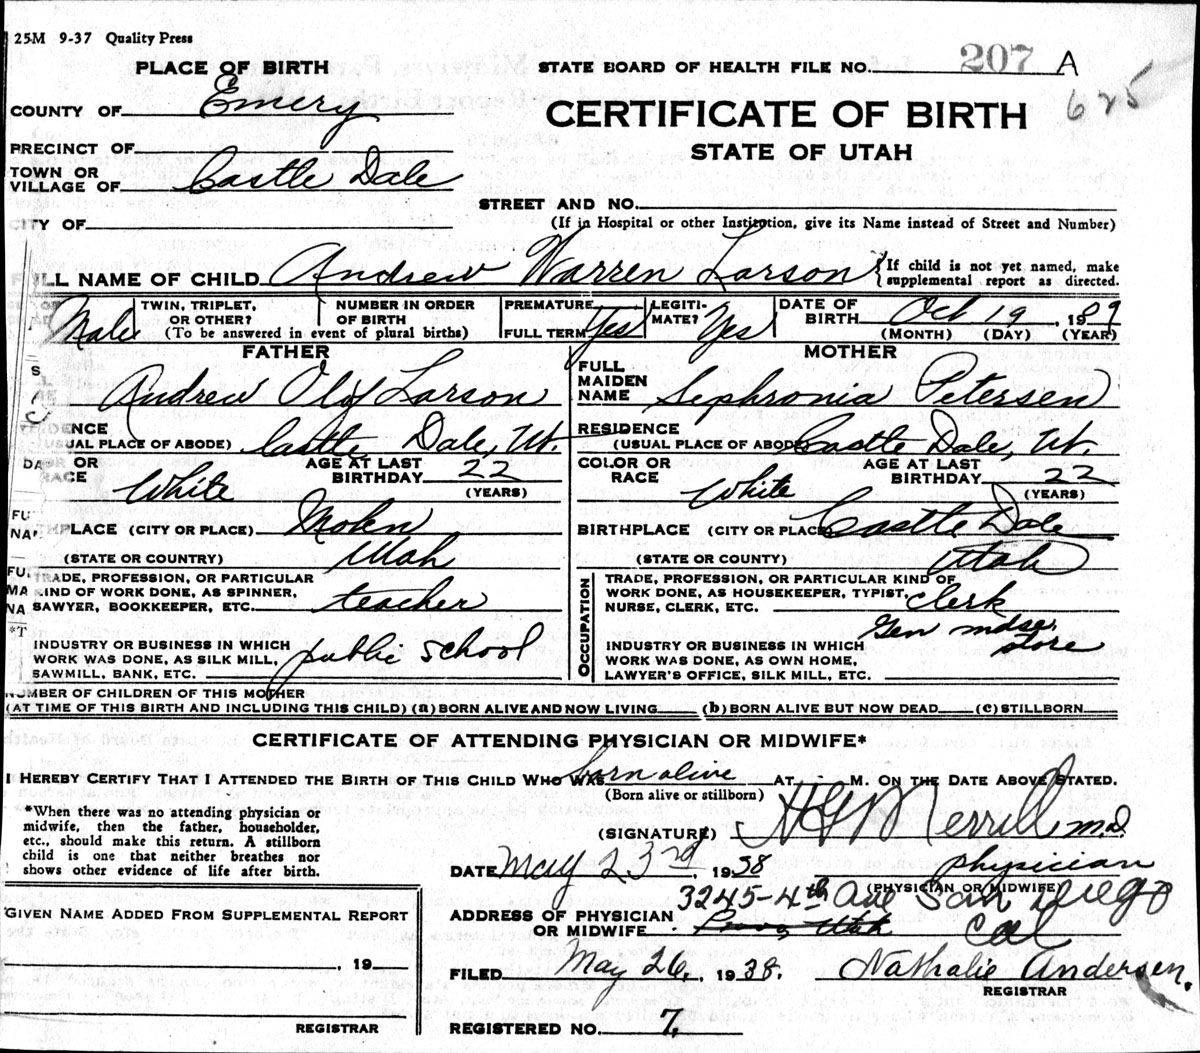 25M 9-37 Quality Press
207 A
625
PLACE OF BIRTH
STATE BOARD OF HEALTH FILE NO.
COUNTY OF Emery
CERTIFICATE OF BIRTH
STATE OF UTAH
PRECINCT OF
TOWN OR
VILLAGE OF Castle Dale
STREET AND NO.
(If in Hospital or other Institution, give its Name instead of Street and Number)
CITY OF
FULL NAME OF CHILD Andrew Warren Larson
{If child is not yet named, make
supplemental report as directed.
Male
TWIN, TRIPLET,
OR OTHER?
NUMBER IN ORDER
OF BIRTH
(To be answered in event of plural births)
PREMATURE
FULL TERM Yes
LEGITI-
MATE? Yes
DATE OF
BIRTH Oct 19, 19
(MONTH) (DAY) (YEAR)
FATHER
Andrew Oly Larson
RESIDENCE
(USUAL PLACE OF ABODE) Castle Dale, Ut.
OR
RACE White
AGE AT LAST
BIRTHDAY 22
(YEARS)
BIRTHPLACE (CITY OR PLACE) Molen
(STATE OR COUNTRY) Utah
TRADE, PROFESSION, OR PARTICULAR
KIND OF WORK DONE, AS SPINNER,
SAWYER, BOOKKEEPER, ETC. teacher
INDUSTRY OR BUSINESS IN WHICH
WORK WAS DONE, AS SILK MILL,
SAWMILL, BANK, ETC. public school
MOTHER
FULL
MAIDEN
NAME Sephronia Petersen
RESIDENCE
(USUAL PLACE OF ABODE) Castle Dale, Ut.
COLOR OR
RACE White
AGE AT LAST
BIRTHDAY 22
(YEARS)
BIRTHPLACE (CITY OR PLACE) Castle Dale
(STATE OR COUNTY) Utah
OCCUPATION
TRADE, PROFESSION, OR PARTICULAR KIND OF
WORK DONE, AS HOUSEKEEPER, TYPIST,
NURSE, CLERK, ETC. Clerk
INDUSTRY OR BUSINESS IN WHICH Gen mdse.
WORK WAS DONE, AS OWN HOME, store
LAWYER'S OFFICE, SILK MILL, ETC.
NUMBER OF CHILDREN OF THIS MOTHER
(AT TIME OF THIS BIRTH AND INCLUDING THIS CHILD) (a) BORN ALIVE AND NOW LIVING (b) BORN ALIVE BUT NOW DEAD (c) STILLBORN
CERTIFICATE OF ATTENDING PHYSICIAN OR MIDWIFE*
I HEREBY CERTIFY THAT I ATTENDED THE BIRTH OF THIS CHILD WHO WAS born alive AT M. ON THE DATE ABOVE STATED.
(Born alive or stillborn)
*When there was no attending physician or
midwife, then the father, householder,
etc., should make this return. A stillborn
child is one that neither breathes nor
shows other evidence of life after birth.
(SIGNATURE) Merrill M.D.
DATE May 23rd, 1938 physician
(PHYSICIAN OR MIDWIFE)
3245-4th Ave San Diego
ADDRESS OF PHYSICIAN
OR MIDWIFE Provo, Utah Cal
FILED May 26, 1938. Nathalie Andersen.
REGISTRAR
REGISTERED NO. 7.
GIVEN NAME ADDED FROM SUPPLEMENTAL REPORT
, 19
REGISTRAR